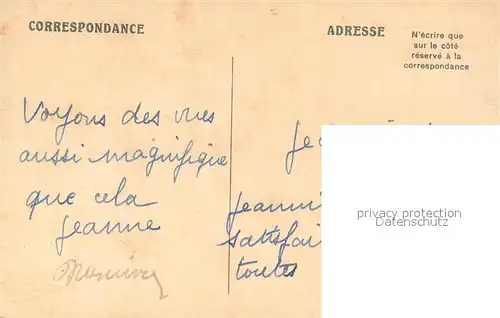 CORRESPONDANCE
ADRESSE
N'écrire que
sur le côté
réservé à la
correspondance
Voyons des vues
aussi magnifique
que cela
Jeanne
Je
Jeanni
satisfai
toutes
privacy protection
Datenschutz